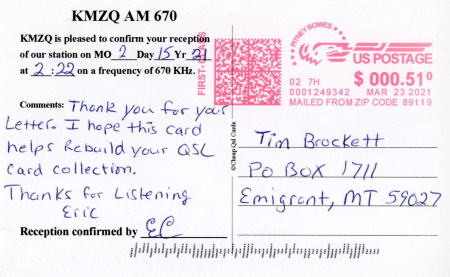 KMZQ AM 670
KMZQ is pleased to confirm your reception
of our station on MO 2 Day 15 Yr 21
at 2 : 22 on a frequency of 670 KHz.
Comments: Thank you for your
Letter. I hope this card
helps Rebuild your QSL
Card collection.
Thanks for Listening
Eric
Reception confirmed by EC
©Cheap Qsl Cards
FIRST-CLASS
PITNEY BOWES
US POSTAGE
$ 000.51⁰
02 7H
0001249342 MAR 23 2021
MAILED FROM ZIP CODE 89119
Tim Brockett
PO Box 1711
Emigrant, MT 59027